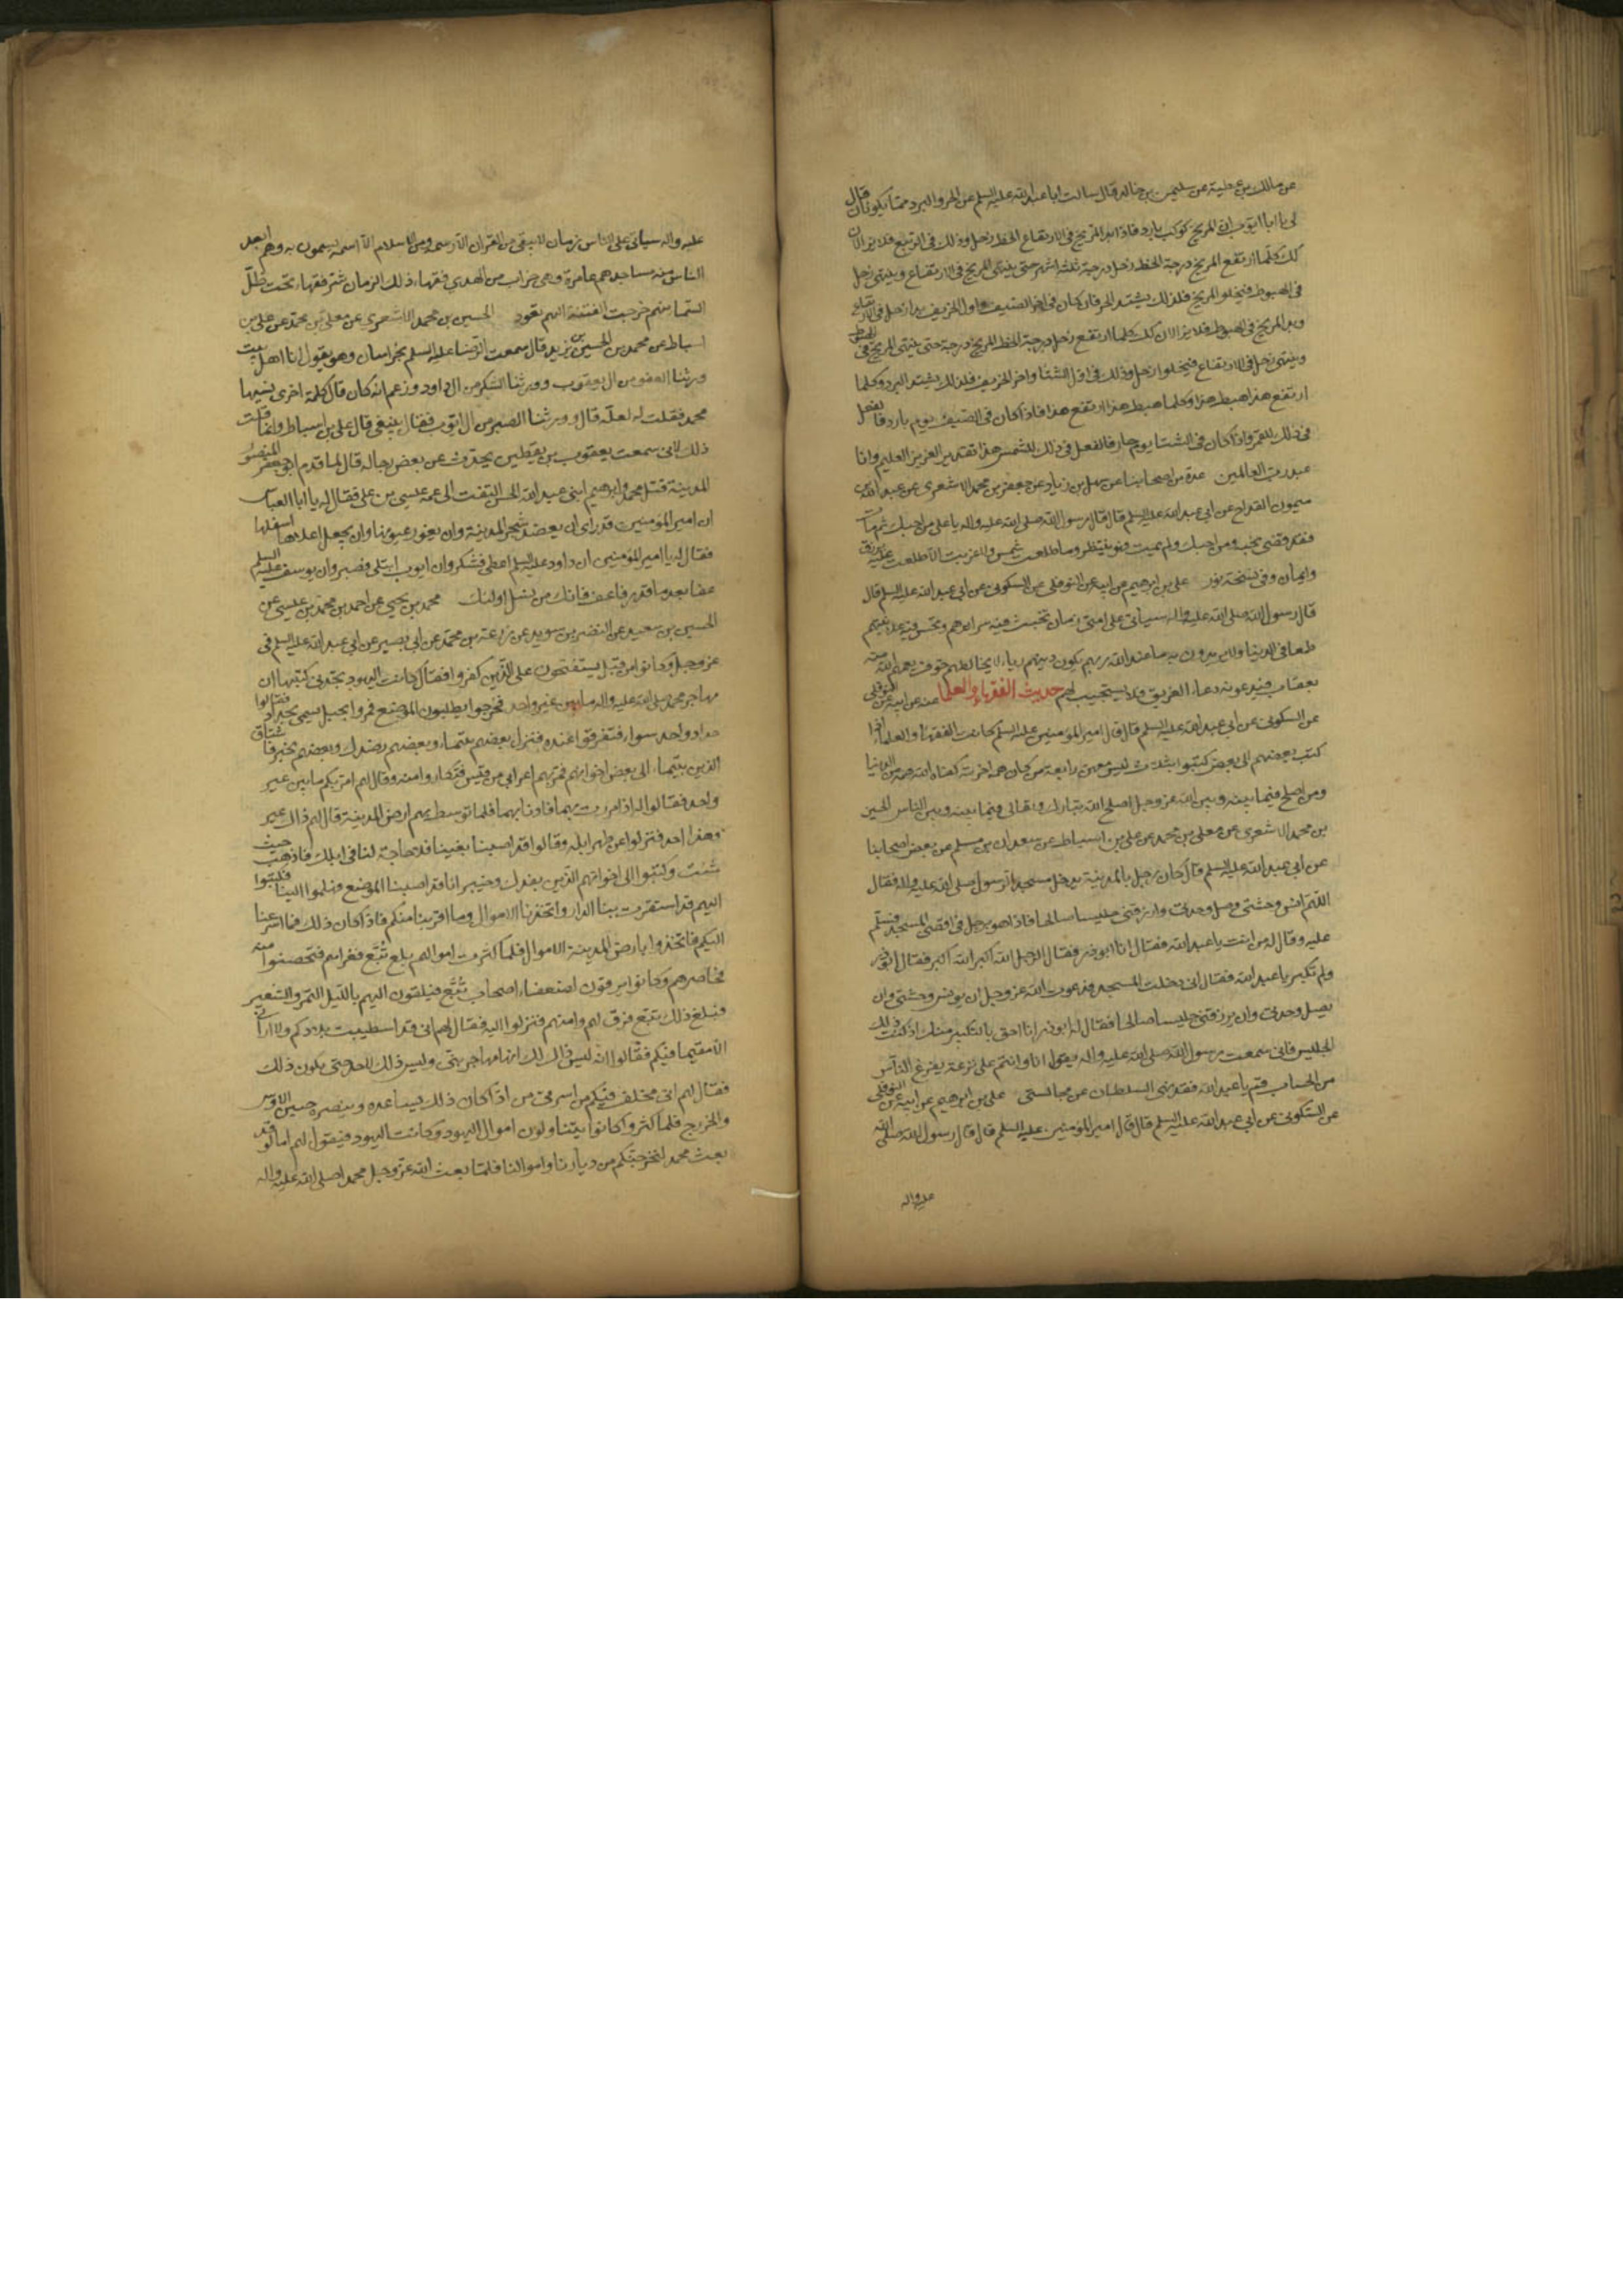 عن مالك بن عطية عن سليمن بن خالد قال سالت ابا عبد الله عليه السلم عن الحر والبرد مما يكونان قال
لى يا ابا ايوب ان المريخ كوكب بارد فاذا بدا المريخ فى الارتفاع انحط زحل وذلك فى الربيع فلا يزالان
كك كلما ارتفع المريخ درجة انحط زحل درجة ثلثة اشهر حتى ينتهى المريخ فى الارتفاع وينتهى زحل
فى الهبوط فيخلو المريخ فلذلك يشتد الحر فاذا كان فى اخر الصيف واول الخريف بدا زحل فى الارتفاع
وبدا المريخ فى الهبوط فلا يزالان كك كلما ارتفع زحل درجة انحط المريخ درجة حتى ينتهى المريخ فى الهبوط
وينتهى زحل فى الارتفاع فيخلو زحل وذلك فى اول الشتا واخر الخريف فلذلك يشتد البرد وكلما
ارتفع هذا هبط هذا وكلما هبط هذا ارتفع هذا فاذا كان فى الصيف يوم بارد فالفعل
فى ذلك للقمر واذا كان فى الشتا يوم حار فالفعل فى ذلك للشمس هذا تقدير العزيز العليم وانا
عبد رب العالمين عدة من اصحابنا عن سهل بن زياد عن جعفر بن محمد الاشعرى عن عبد الله بن
ميمون القداح عن ابى عبد الله عليه السلم قال قال رسول الله صلى الله عليه واله يا على من احبك ثم مات
فقد قضى نحبه ومن احبك ولم يمت فهو ينتظر وما طلعت شمس ولا غربت الا طلعت عليه برزق
وايمان وفى نسخة نور على بن ابرهيم عن ابيه عن النوفلى عن السكونى عن ابى عبد الله عليه السلم قال
قال رسول الله صلى الله عليه واله سياتى على امتى زمان تخبث فيه سرائرهم وتحسن فيه علانيتهم
طمعا فى الدنيا ولا يريدون به ما عند الله ربهم يكون دينهم رياء لا يخالطهم خوف يعمهم الله منه
بعقاب فيدعونه دعاء الغريق فلا يستجيب لهم حديث الفقهاء والعلما عنه عن ابيه عن النوفلى
عن السكونى عن ابى عبد الله عليه السلم قال قال امير المؤمنين عليه السلم كانت الفقهاء والعلماء اذا
كتب بعضهم الى بعض كتبوا بثلاث ليس معهن رابعة من كان همه اخرته كفاه الله همه من الدنيا
ومن اصلح فيما بينه وبين الله عز وجل اصلح الله تبارك وتعالى فيما بينه وبين الناس الحسين
بن محمد الاشعرى عن معلى بن محمد عن على بن اسباط عن سعدان بن مسلم عن بعض اصحابنا
عن ابى عبد الله عليه السلم قال كان رجل بالمدينة يدخل مسجد الرسول صلى الله عليه واله فقال
اللهم انس وحشتى وصل وحدتى وارزقنى جليسا صالحا فاذا هو برجل فى اقصى المسجد فسلم
عليه وقال له من انت يا عبد الله فقال انا ابو ذر فقال الرجل الله اكبر الله اكبر فقال ابو ذر
ولم تكبر يا عبد الله فقال انى دخلت المسجد فدعوت الله عز وجل ان يونس وحشتى وان
يصل وحدتى وان يرزقنى جليسا صالحا فقال له ابو ذر انا احق بالتكبير منك اذ كنت ذلك
الجليس فانى سمعت رسول الله صلى الله عليه واله يقول انا وانتم على نزعة يفرغ الناس
من الحساب قم يا عبد الله فقد نهى السلطان عن مجالستى على بن ابرهيم عن ابيه عن النوفلى
عن السكونى عن ابى عبد الله عليه السلم قال قال امير المؤمنين عليه السلم قال قال رسول الله صلى الله
عليه واله
عليه واله سياتى على الناس زمان لا يبقى من القران الا رسمه ومن الاسلام الا اسمه يسمون به وهم ابعد
الناس منه مساجدهم عامرة وهى خراب من الهدى فقهاء ذلك الزمان شر فقهاء تحت ظل
السما منهم خرجت الفتنة واليهم تعود الحسين بن محمد الاشعرى عن معلى بن محمد عن على بن
اسباط عن محمد بن الحسين بن يزيد قال سمعت الرضا عليه السلم بخراسان وهو يقول انا اهل بيت
ورثنا العفو من ال يعقوب وورثنا الشكر من ال داود وزعم انه كان قال كلمة اخرى ونسيها
محمد فقلت له لعله قال وورثنا الصبر من ال ايوب فقال ينبغى قال على بن اسباط وانما قلت
ذلك لانى سمعت يعقوب بن يقطين يحدث عن بعض رجاله قال لما قدم ابو جعفر المنصور
المدينة قتل محمد وابرهيم ابنى عبد الله الحسن التفت الى عمه عيسى بن على فقال له يا ابا العباس
ان امير المؤمنين قد راى ان يعضد شجر المدينة وان يعور عيونها وان يجعل اعلاها اسفلها
فقال له يا امير المؤمنين ان داود عليه السلم اعطى فشكر وان ايوب ابتلى فصبر وان يوسف عليه السلم
عفا بعد ما قدر فاعف فانك من نسل اولئك محمد بن يحيى عن احمد بن محمد بن عيسى عن
الحسين بن سعيد عن النضر بن سويد عن زرعة بن محمد عن ابى بصير عن ابى عبد الله عليه السلم فى
عز وجل وكانوا من قبل يستفتحون على الذين كفروا فقال كانت اليهود تجد فى كتبها ان
مهاجر محمد صلى الله عليه واله ما بين عير واحد فخرجوا يطلبون الموضع فمروا بجبل يسمى بحداد فقالوا
حداد واحد سواء فتفرقوا عنده فنزل بعضهم بتيماء وبعضهم بفدك وبعضهم بخيبر فاشتاق
الذين بتيماء الى بعض اخوانهم فمر بهم اعرابى من قيس فتكاروا منه وقال لهم امر بكم ما بين عير
واحد فقالوا له اذا مررت بهما فاذنا بهما فلما توسط بهم ارض المدينة قال لهم ذاك عير
وهذا احد فنزلوا عن ظهر ابله وقالوا قد اصبنا بغيتنا فلا حاجة لنا فى ابلك فاذهب حيث
شئت وكتبوا الى اخوانهم الذين بفدك وخيبر انا قد اصبنا الموضع فهلموا الينا فكتبوا
اليهم قد استقرت بنا الدار واتخذنا الاموال وما اقربنا منكم فاذا كان ذلك فما اسرعنا
اليكم فاتخذوا بارض المدينة الاموال فلما كثرت اموالهم بلغ تبع فغزاهم فتحصنوا منه
فحاصرهم وكانوا يرقون لضعفاء اصحاب تبع فيلقون اليهم بالليل التمر والشعير
فبلغ ذلك تبع فرق لهم وامنهم فنزلوا اليه فقال لهم انى قد استطيبت بلادكم ولا ارانى
الا مقيما فيكم فقالوا انه ليس ذاك لك انها مهاجر نبى وليس ذلك لاحد حتى يكون ذلك
فقال لهم انى مخلف فيكم من اسرتى من اذا كان ذلك يساعده وينصره حيين الاوس
والخزرج فلما كثروا كانوا يتناولون اموال اليهود وكانت اليهود فيقول لهم اما لو قد
بعث محمد لنخرجنكم من ديارنا واموالنا فلما بعث الله عز وجل محمد اصلى الله عليه واله